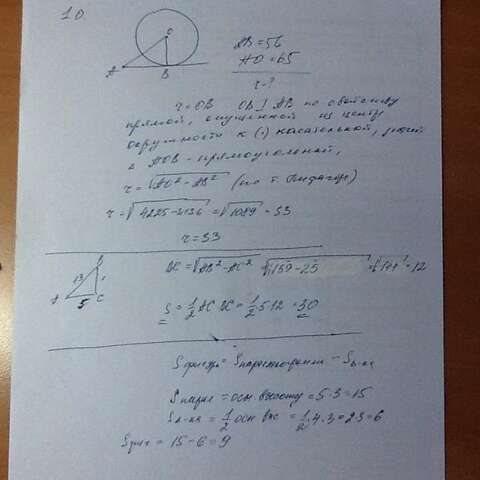 10.
O
A
B
AB = 56
AO = 65
r - ?
r = OB OB ⊥ AB по свойству
прямой, опущенной из центра
окружности к (·) касательной,
AOB - прямоугольный,
r = √AO² - AB² (по т. Пифагора)
r = √4225 - 3136 = √1089 = 33
r = 33
B
13
A
5
C
BC = √AB² - AC² √159 - 25 = √144 = 12
S = 1/2 AC BC = 1/2 5 12 = 30
S фигуры = S - S
S парал = осн. высоту = 5 · 3 = 15
= 1/2 осн выс = 1/2 · 4 · 3 = 2 3 = 6
S фиг = 15 - 6 = 9